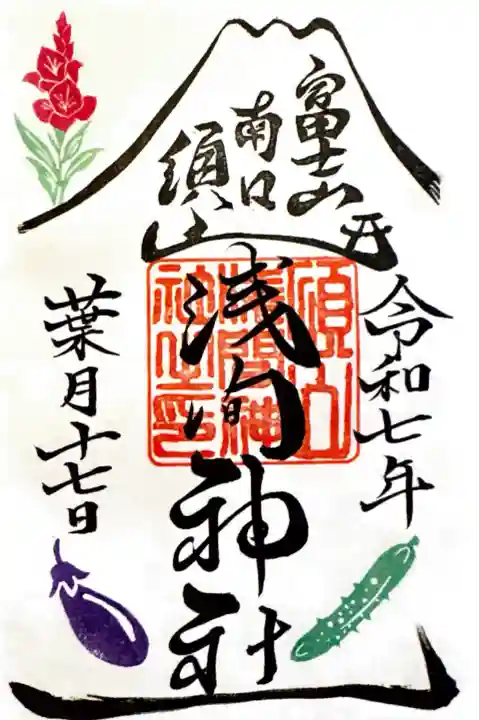 富士山
南口
須山
浅間神社
令和七年
葉月十七日
須山
浅間神
社之印